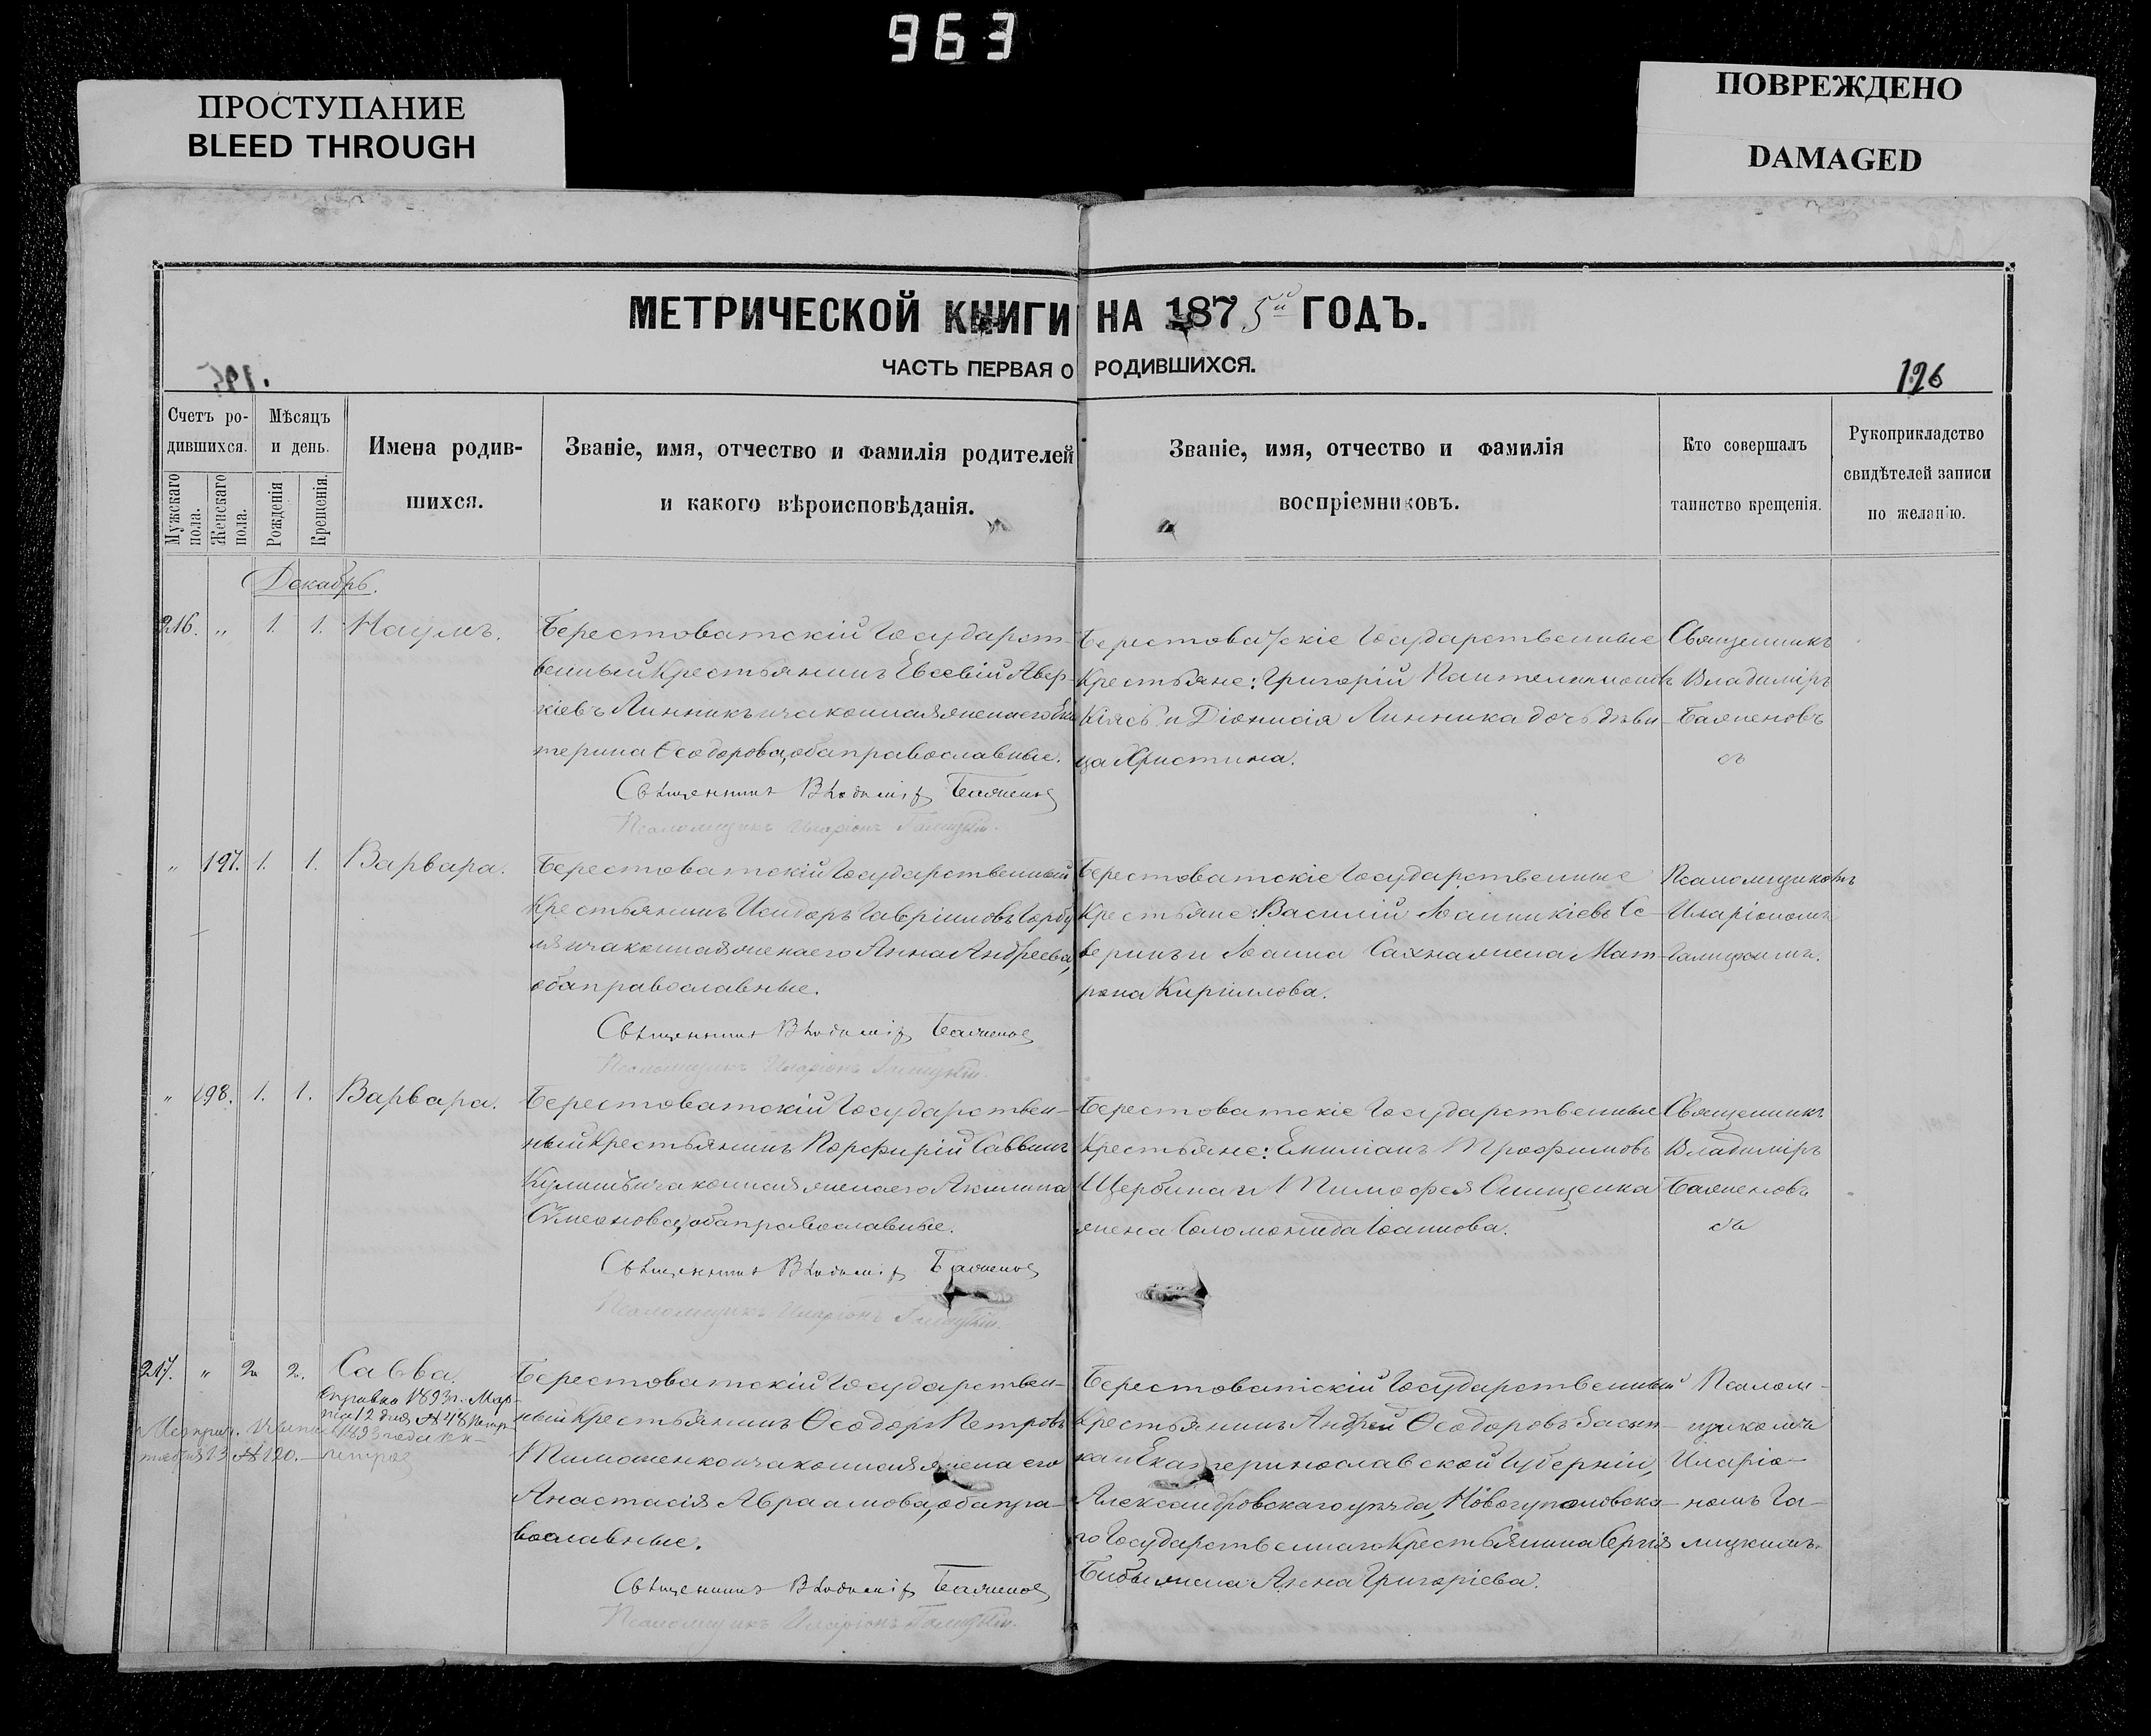 963
ПРОСТУПАНИЕ
BLEED THROUGH
ПОВРЕЖДЕНО
DAMAGED
МЕТРИЧЕСКОЙ КНИГИ НА 1875й ГОДЪ.
ЧАСТЬ ПЕРВАЯ О РОДИВШИХСЯ.
196
Счетъ ро-
дившихся.
Мужскаго пола.
Женскаго пола.
Мѣсяцъ
и день.
Рожденія
Крещенія.
Имена родив-
шихся.
Званіе, имя, отчество и фамилія родителей
и какого вѣроисповѣданія.
Званіе, имя, отчество и фамилія
воспріемниковъ.
Кто совершалъ
таинство крещенія.
Рукоприкладство
свидѣтелей записи
по желанію.
Декабрь.
216. „ 1. 1. Наумъ.
Берестоватскій Государст-
венный Крестьянинъ Евсевій Авер-
кіевъ Линникъ и законная жена его Ека
терина Ѳеодорова, оба православные.
Священникъ Владиміръ Баженовъ
Псаломщикъ Иларіонъ Галицкій.
Берестоватскіе Государственные
Крестьяне: Григорій Пантелимоновъ
и Діонисія Линника дочь дѣви-
ца Христина.
Священникъ
Владиміръ
Баженовъ
„ 197. 1. 1. Варвара.
Берестоватскій Государственный
Крестьянинъ Исидоръ Гавріиловъ Горбу
ля и законная жена его Анна Андреева,
оба православные.
Священникъ Владиміръ Баженовъ
Псаломщикъ Иларіонъ Галицкій.
Берестоватскіе Государственные
Крестьяне: Василій Іоанникіевъ Се-
веринъ и Іоанна Сахна жена Мат-
рона Кириллова.
Псаломщикомъ
Иларіономъ
Галицкимъ.
„ 198. 1. 1. Варвара.
Берестоватскій Государствен-
ный Крестьянинъ Порфирій Саввинъ
Кулишъ и законная жена его Акилина
Сѵмеонова, оба православные.
Священникъ Владиміръ Баженовъ
Псаломщикъ Иларіонъ Галицкій.
Берестоватскіе Государственные
Крестьяне: Емиліанъ Трофимовъ
Щербина и Тимофея Онищенка
жена Соломонида Іоаннова.
Священникъ
Владиміръ
Баженовъ
217. „ 2. 2. Савва.
Справка 1893 г. Мар-
та 12 дня № 48
1893 года
13 № 120.
Берестоватскій Государствен-
ный Крестьянинъ Ѳеодоръ Петровъ
Тимошенко и законная жена его
Анастасія Авраамова, оба пра-
вославные.
Священникъ Владиміръ Баженовъ
Псаломщикъ Иларіонъ Галицкій.
Берестоватскій Государственный
Крестьянинъ Андрей Ѳеодоровъ Засып-
ка и Екатеринославской Губерніи,
Александровскаго уѣзда, Новогуполовска-
го Государственнаго Крестьянина Сергія
Бибы жена Анна Григоріева.
Псалом-
щикомъ
Иларіо-
номъ Га-
лицкимъ.